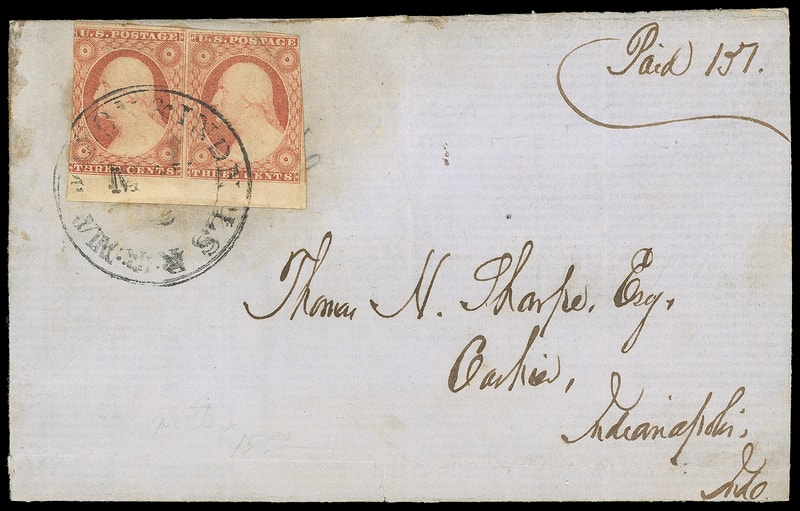 U.S. POSTAGE U.S. POSTAGE
THREE CENTS THREE CENTS
Paid 157.
Thomas N. Sharpe, Esq,
Cashier,
Indianapolis,